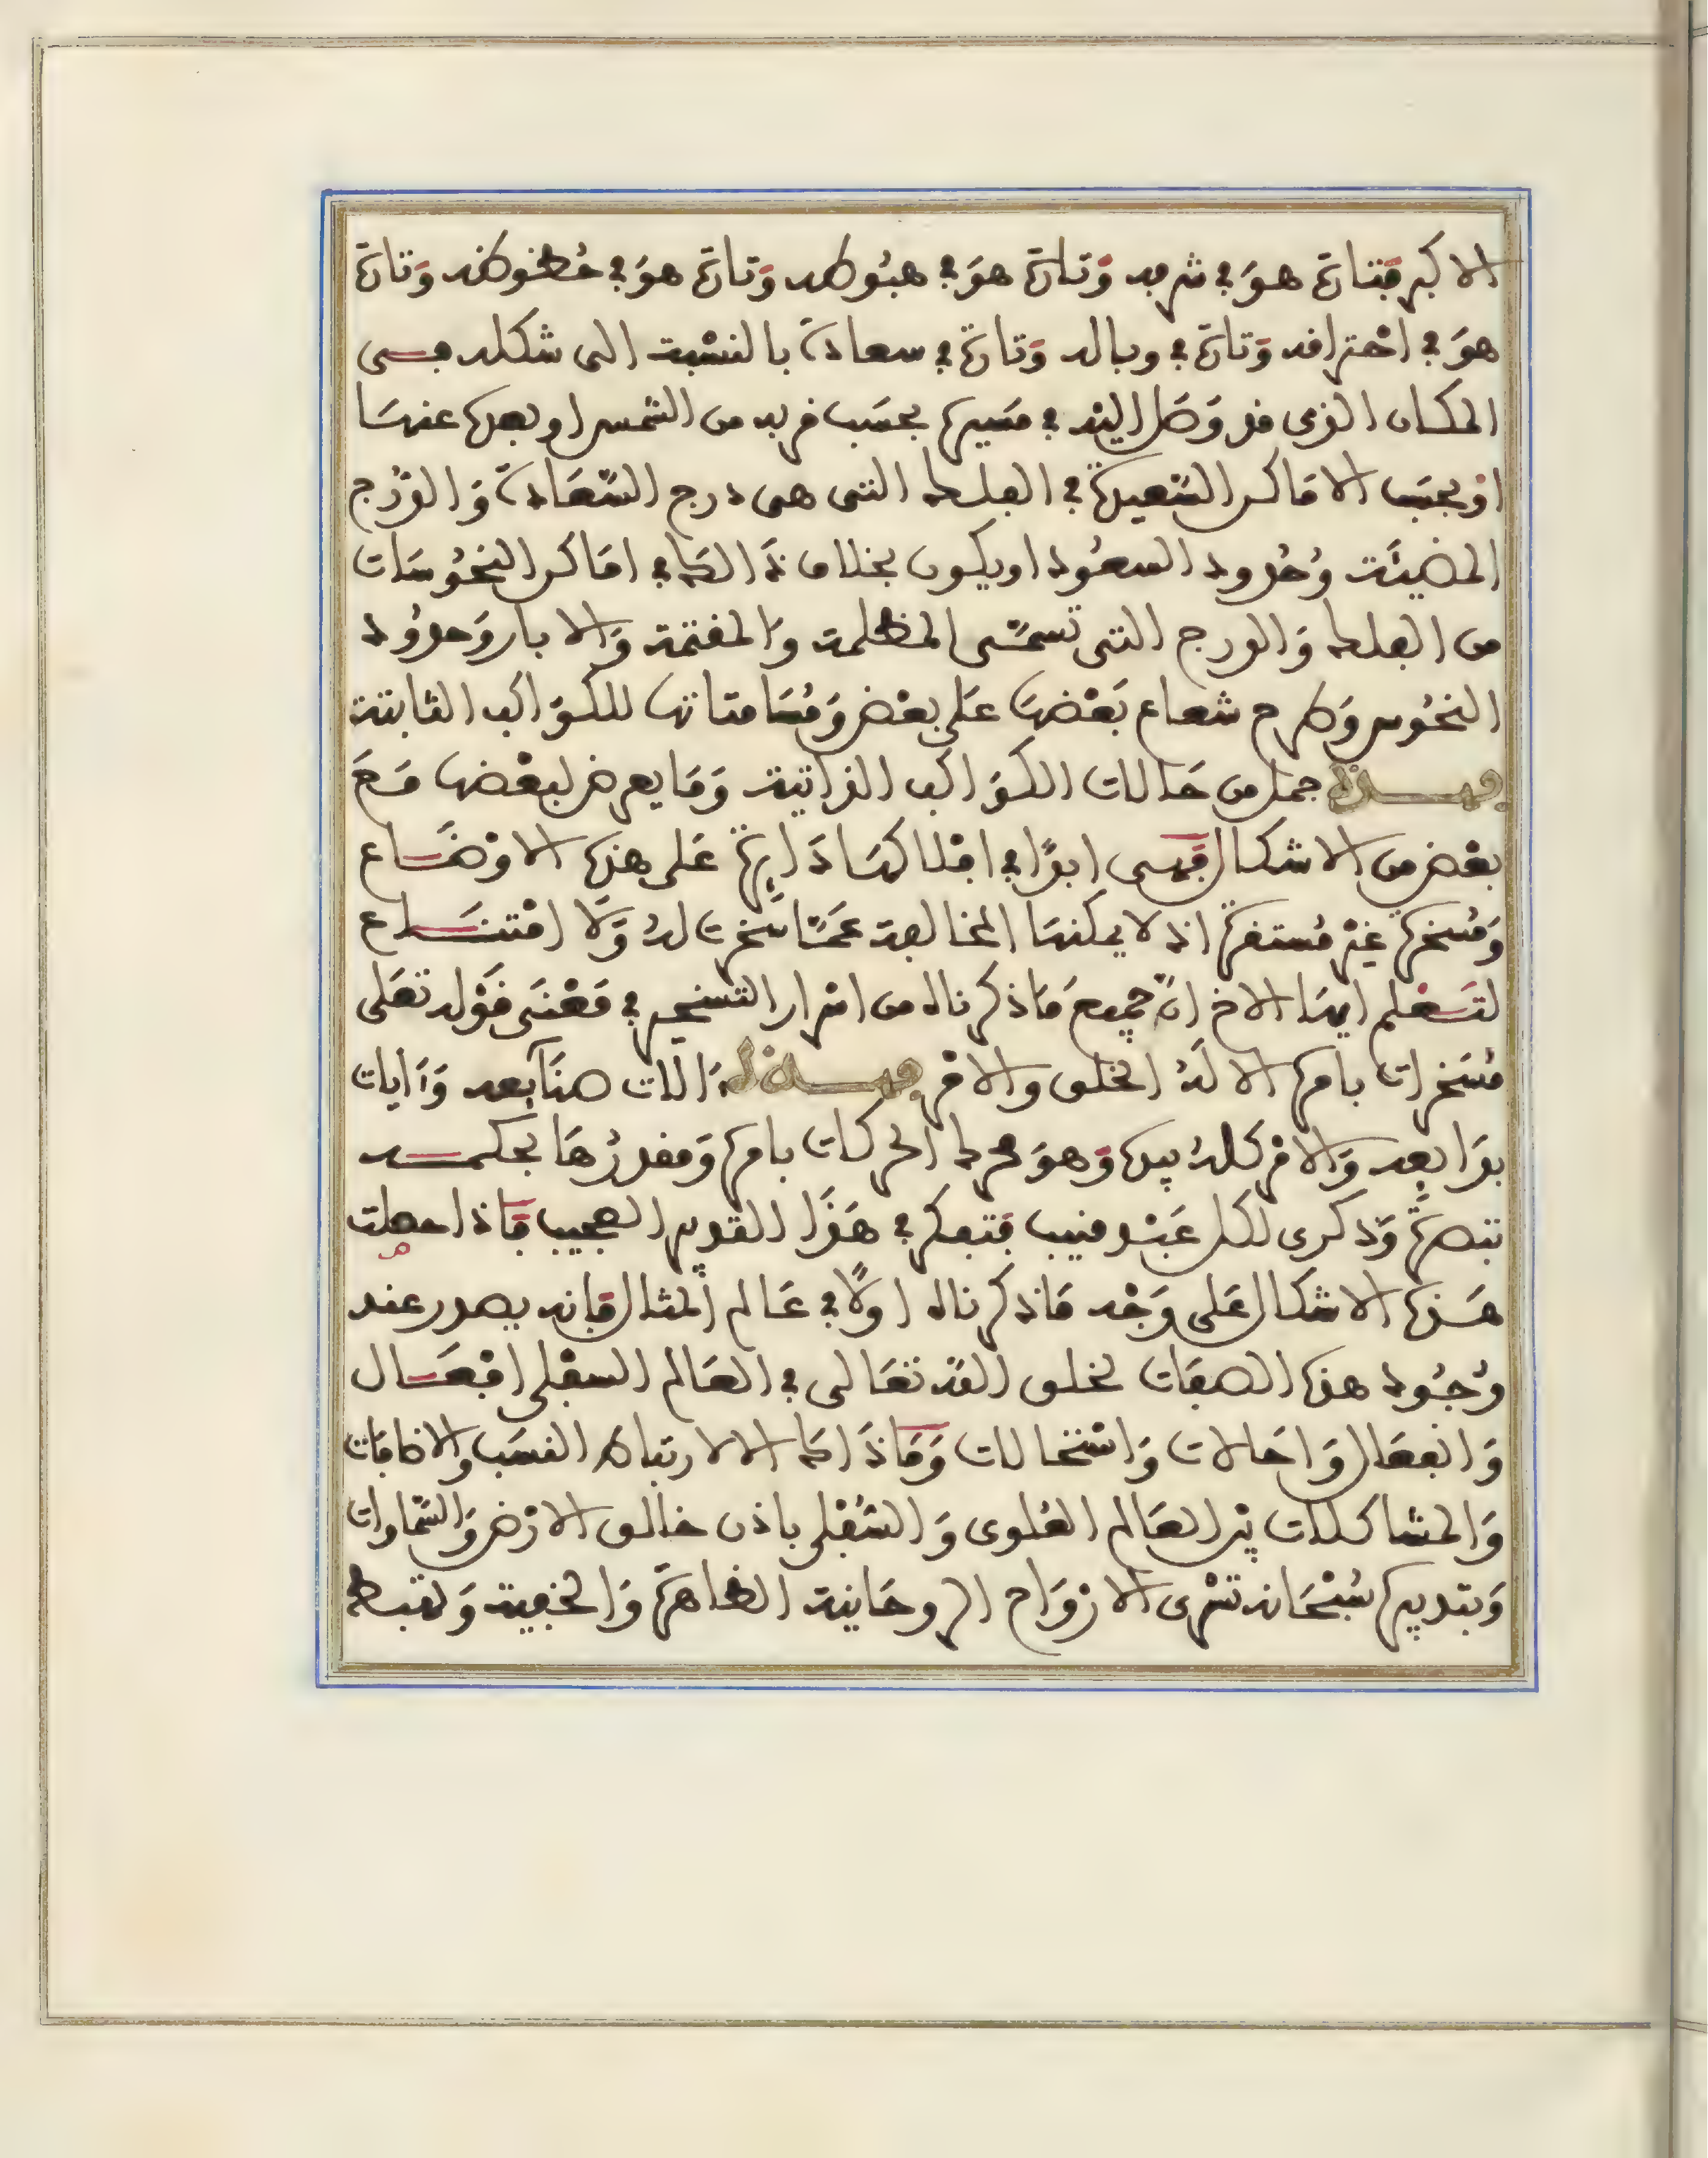 الاكبر فتارة هو في شرفه وَتارة هوَ في هبُوطه وَتارة هوَ في حُظوظه وَتارة
هوَ في احْتراقه وَتارة في وباله وَتارة في سعادة بالنسْبة الى شكله فهى
المكان الذى قد وَصَل اليْه في مسَيره بحسَب قربه من الشمس او بعده عنهَا
اوْ بحسَب الامَاكن السَّعيدة في الفلك التى هى درج السَّعَادة وَالدّرج
المضيئَة وُحُدود السعُود او يكون بخلاف ذَالك في امَاكن النحُوسَات
من الفلك وَالدرج التى تسمَّى المظلمة وَالمغتمة وَالابار وَحدوُد
النحُوس وَطرح شعاع بَعْضهَا عَلى بعْض وَمُسَامتاتها للكوَاكب الثابتة
فهـــذه جمل من حَالات الكوَاكب الذاتية وَمَا يعرض لبعْضها مَعَ
بعْض من الاشكال فَهـى ابدًا في افْلاكهَا دَايرة عَلى هذه الاوْضَـاع
وَمُسَخرة غيْر مُستقرة اذ لا يمكنهَا المخالفة عمَّا سَخرت لهُ وَلَا امْتنـَـاع
لتـَعْلم ايهَا الاخ انَّ جميعَ مَا ذكرناه من اسْرار التسخير في مَعْنَى قَوْله تعَلى
مُسَخرات بامره الا لَهُ الخلق والامْر فهـــذه ءَالات صنَايعه وَءَايات
بدَايعه وَالامْر كلهُ بيده وَهوَ محرك الحركات بامره وَمقدرُهَا بحكمـــه
تبصرةً وَذكرى لكل عَبْد منيب فتفكر في هَذَا التدبير العجيب فاذا حصلت
هَـذه الاشكال عَلى وَجْه مَا ذكرناه اولًا في عَالم المثال فَانه يصدر عند
وُجُود هذه الصفات لخلق اللّه تعَالى في العَالم السفْلى افْعَـال
وَانفعَال وَاحَالات وَاسْتحالات وَمَا ذَاك الا لارتباط النسَب والاضافات
وَالمشاكلات بيْن العَالم العُلوى وَالسُّفْلى باذن خالق الارْض وَالسَّمَاوات
وَبتدبيره سُبْحَانه تسْرى الارْوَاح الروحَانية الظاهرَة وَالخفية وَلتهبط